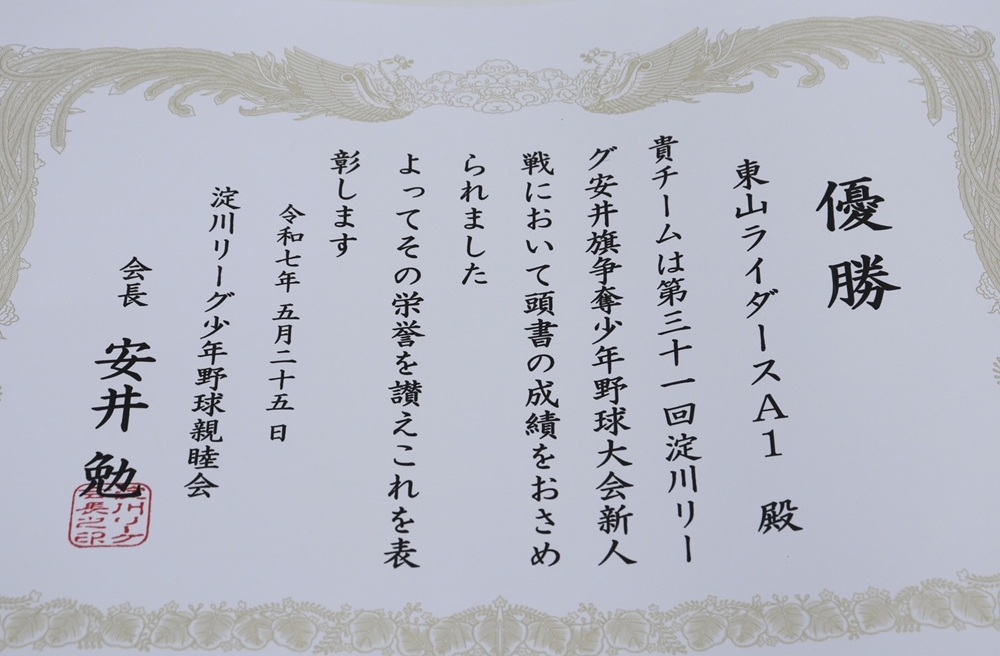 優勝
東山ライダースA1 殿
貴チームは第三十一回淀川リー
グ安井旗争奪少年野球大会新人
戦において頭書の成績をおさめ
られました
よってその栄誉を讃えこれを表
彰します
令和七年 五月二十五日
淀川リーグ少年野球親睦会
会長 安井 勉
淀川リーグ
会長之印